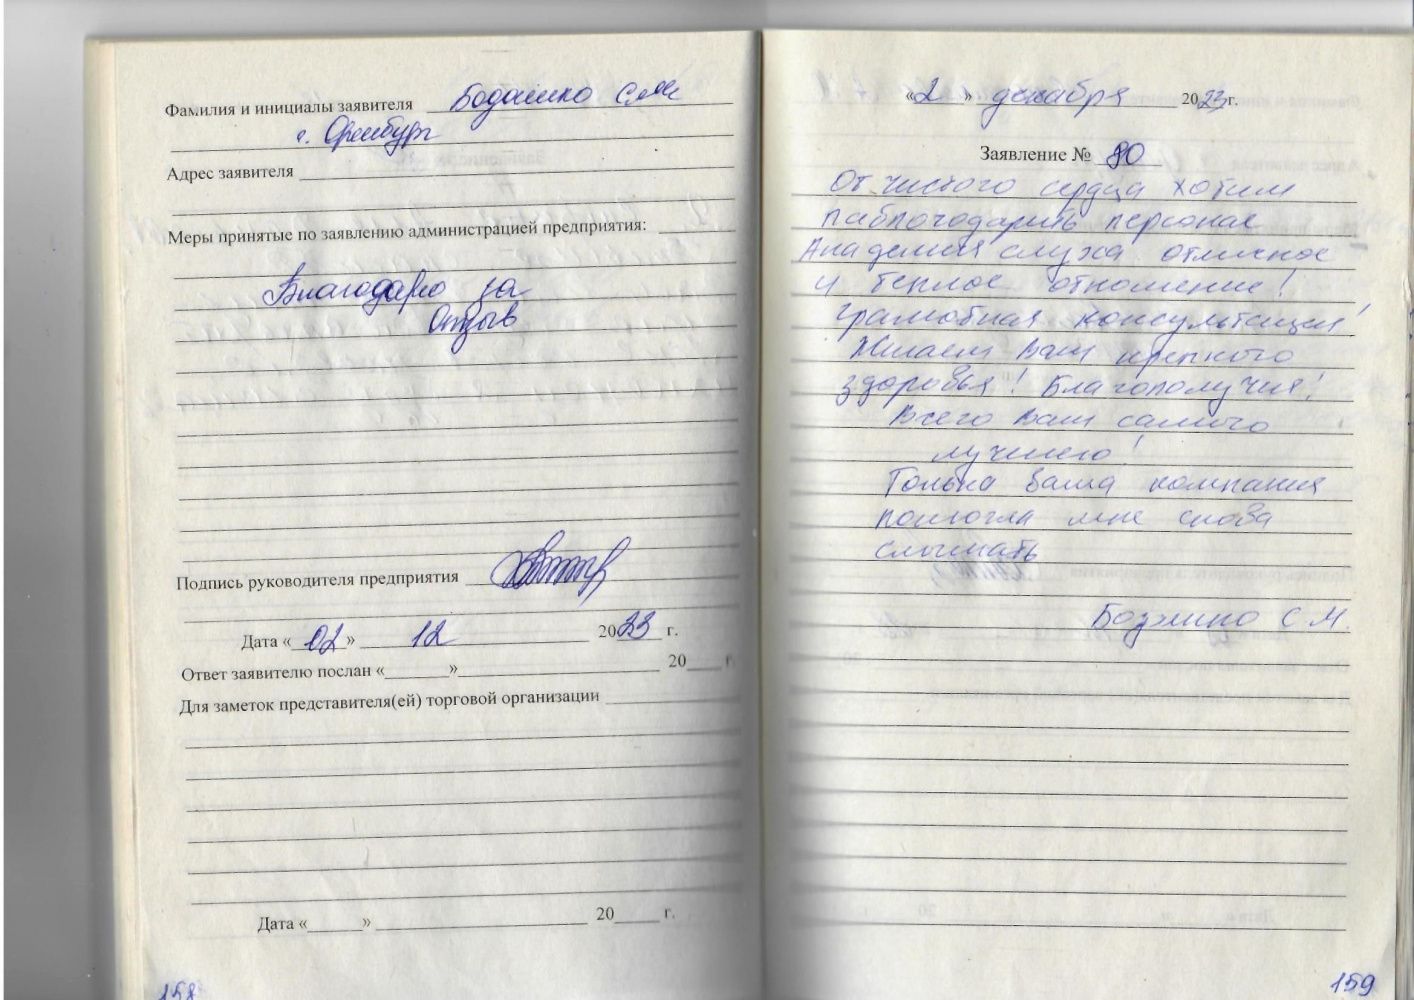 Фамилия и инициалы заявителя
г. Оренбург
Адрес заявителя
Меры принятые по заявлению администрацией предприятия:
Благодарю за
Отзыв
Подпись руководителя предприятия
Дата «02» 12 2023 г.
Ответ заявителю послан « » 20 г
Для заметок представителя(ей) торговой организации
Дата « » 20 г.
158
«2» декабря 2023г.
Заявление № 80
От чистого сердца хотим
паблогодарить персонал
Академия слуха отличное
и теплое отношение!
Грамотная консультация!
Желаем Вам крепкого
здоровья! Благополучия!
Всего Вам самого
лучшего!
Только ваша компания
помогла мне снова
слышать
С.М.
159